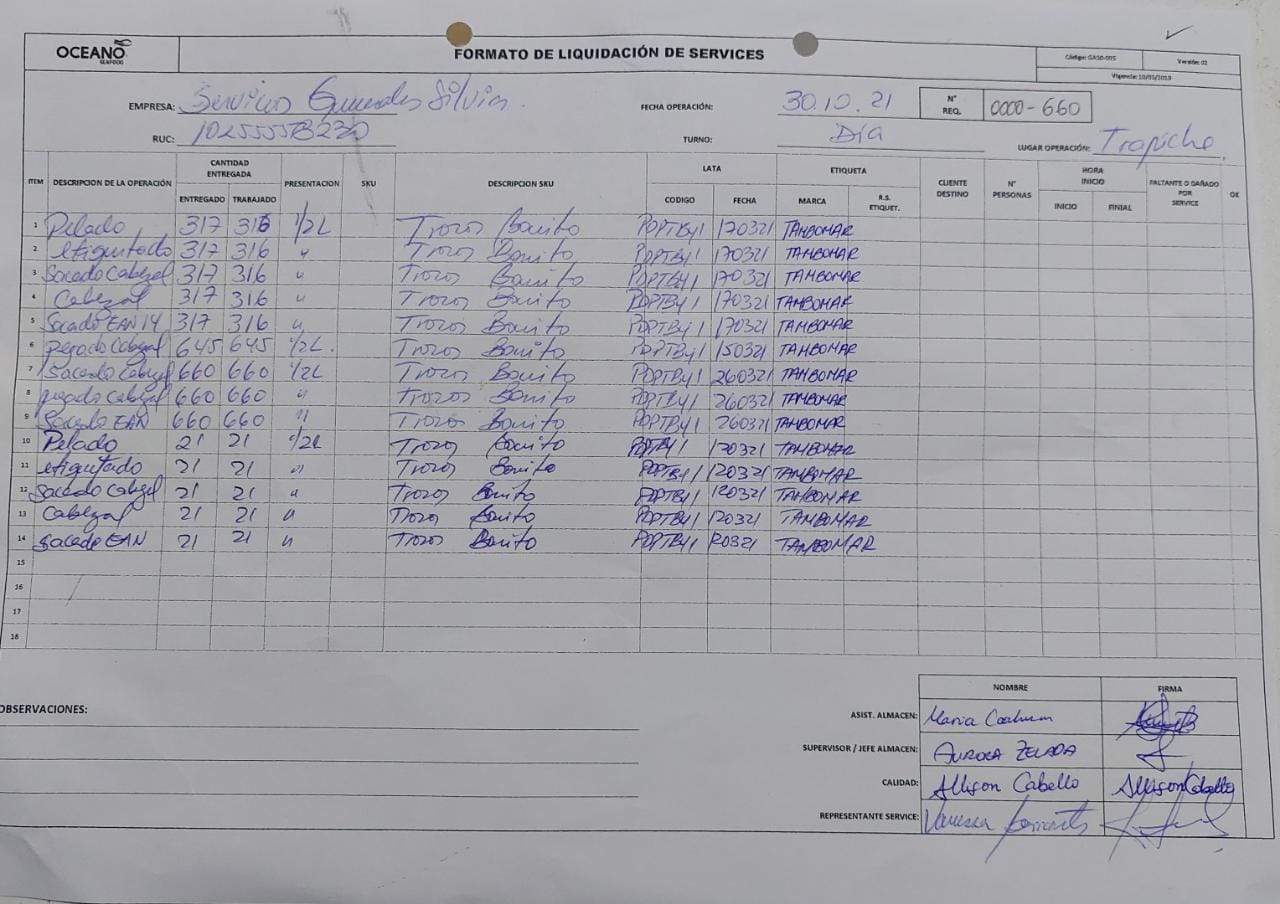 OCEANO
SEAFOOD
FORMATO DE LIQUIDACIÓN DE SERVICES
Código: GASG-005 Versión: 02
Vigencia: 10/05/2019
EMPRESA: Servicios Generales Silvia.
FECHA OPERACIÓN: 30.10.21
N° REQ. 0000-660
RUC: 10255558230
TURNO: Día
LUGAR OPERACIÓN: Trapiche.
ITEM DESCRIPCION DE LA OPERACIÓN CANTIDAD ENTREGADA PRESENTACION SKU DESCRIPCION SKU LATA ETIQUETA CLIENTE DESTINO N° PERSONAS HORA INICIO FALTANTE O DAÑADO POR SERVICE OK
ENTREGADO TRABAJADO CODIGO FECHA MARCA R.S. ETIQUET. INICIO FINIAL
1 Pelado 317 316 1/2L Trozos Bonito PDPTB41 170321 TAMBOMAR
2 etiquetado 317 316 " Trozos Bonito PDPTB41 170321 TAMBOMAR
3 Sacado Cabezal 317 316 " Trozos Bonito PDPTB41 170321 TAMBOMAR
4 Cabezal 317 316 " Trozos Bonito PDPTB41 170321 TAMBOMAR
5 Sacado EAN 14 317 316 " Trozos Bonito PDPTB41 170321 TAMBOMAR
6 pegado Cabezal 645 645 1/2L. Trozos Bonito PDPTB41 150321 TAMBOMAR
7 Sacado Cabezal 660 660 1/2L Trozos Bonito PDPTB41 260321 TAMBOMAR
8 pegado Cabezal 660 660 " Trozos Bonito PDPTB41 260321 TAMBOMAR
9 Sacado EAN 660 660 " Trozos Bonito PDPTB41 260321 TAMBOMAR
10 Pelado 21 21 1/2L Trozos Bonito PDPTB41 120321 TAMBOMAR
11 etiquetado 21 21 " Trozos Bonito PDPTB41 120321 TAMBOMAR
12 Sacado Cabezal 21 21 " Trozos Bonito PDPTB41 120321 TAMBOMAR
13 Cabezal 21 21 " Trozos Bonito PDPTB41 120321 TAMBOMAR
14 Sacado EAN 21 21 " Trozos Bonito PDPTB41 120321 TAMBOMAR
15
16
17
18
NOMBRE FIRMA
OBSERVACIONES:
ASIST. ALMACEN: Maria
SUPERVISOR / JEFE ALMACEN: AURORA ZELADA
CALIDAD: Allison Cabello Allison Cabello
REPRESENTANTE SERVICE: Vanessa